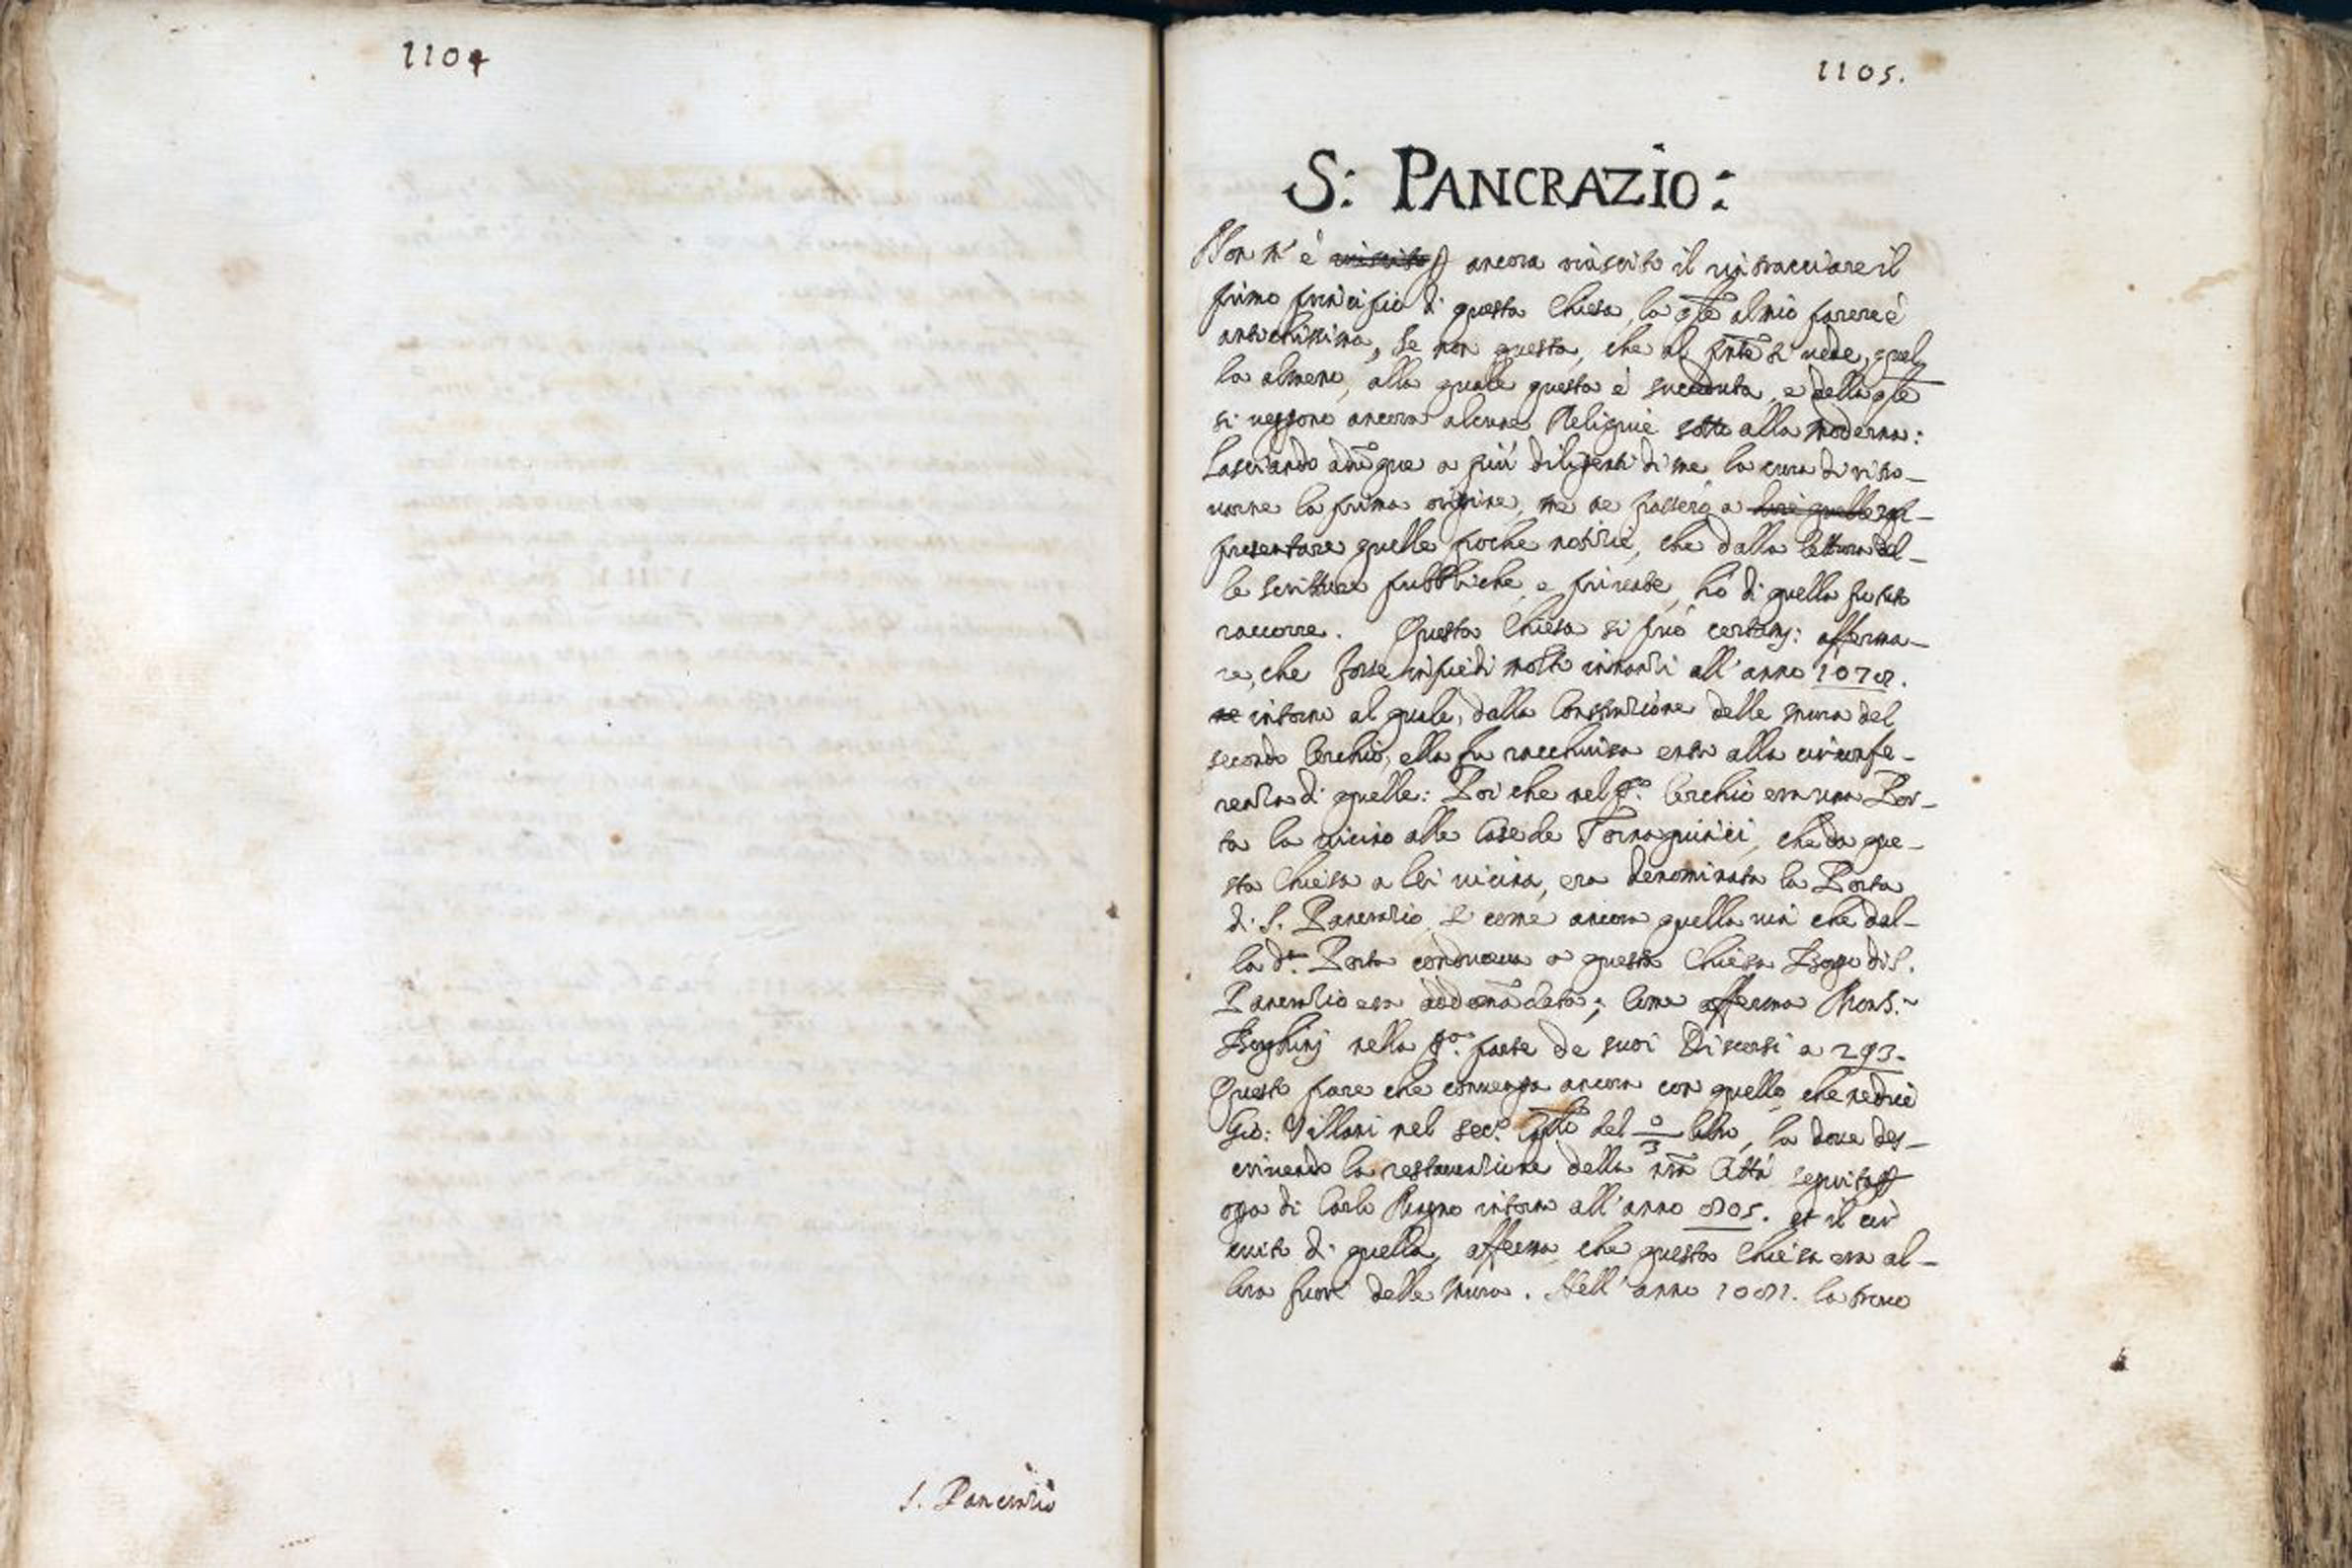 1104
S. Pancrazio
1105.
S: PANCRAZIO:
Non m'è ancora riuscito il rintracciare il
primo principio di questa Chiesa, la qle al mio parere è
antichissima, se non questa, che al pnte si vede, quel
la almeno, alla quale questa è succeduta, e della qle
si veggono ancora alcune Reliquie sotto alla moderna:
Lasciando adūque a più diligenti di me la cura di ritro-
varne la prima origine, me ne passerò a
presentare quelle poche notizie, che dalla lettura del-
le scritture pubbliche, e private, hò di quella potuto
raccorre. Questa Chiesa si può certamᵉ: afferma-
re, che fosse in piedi molti innanzi all'anno 1078.
intorno al quale, dalla Construzione delle mura del
secondo Cerchio, ella fu racchiusa entro alla circonfe-
renza di quelle: Poi che nel pº. Cerchio era una Por-
ta la vicino alle Case de Tornaquinci, che da que-
sta Chiesa a lei vicina, era denominata la Porta
di S. Pancrazio, si come ancora quella via che dal-
la dª. Porta conduceva a questa Chiesa Borgo di S.
Pancrazio era addomādata; come afferma Mons.ʳ
Borghinj nella pª. parte de suoi Discorsi a 293.
Questo pare che convenga ancora con quello che ne dice
Gio: Villani nel sec.º Capᵗᵒ del 3º libro, la dove des-
crivendo la restaurazione della nrā Città seguita p
opa di Carlo Magno intorno all'anno 805. et il cir
cuito di quella, afferma che questa Chiesa era al-
lora fuori delle mura. Nell'anno 1081. la trovo